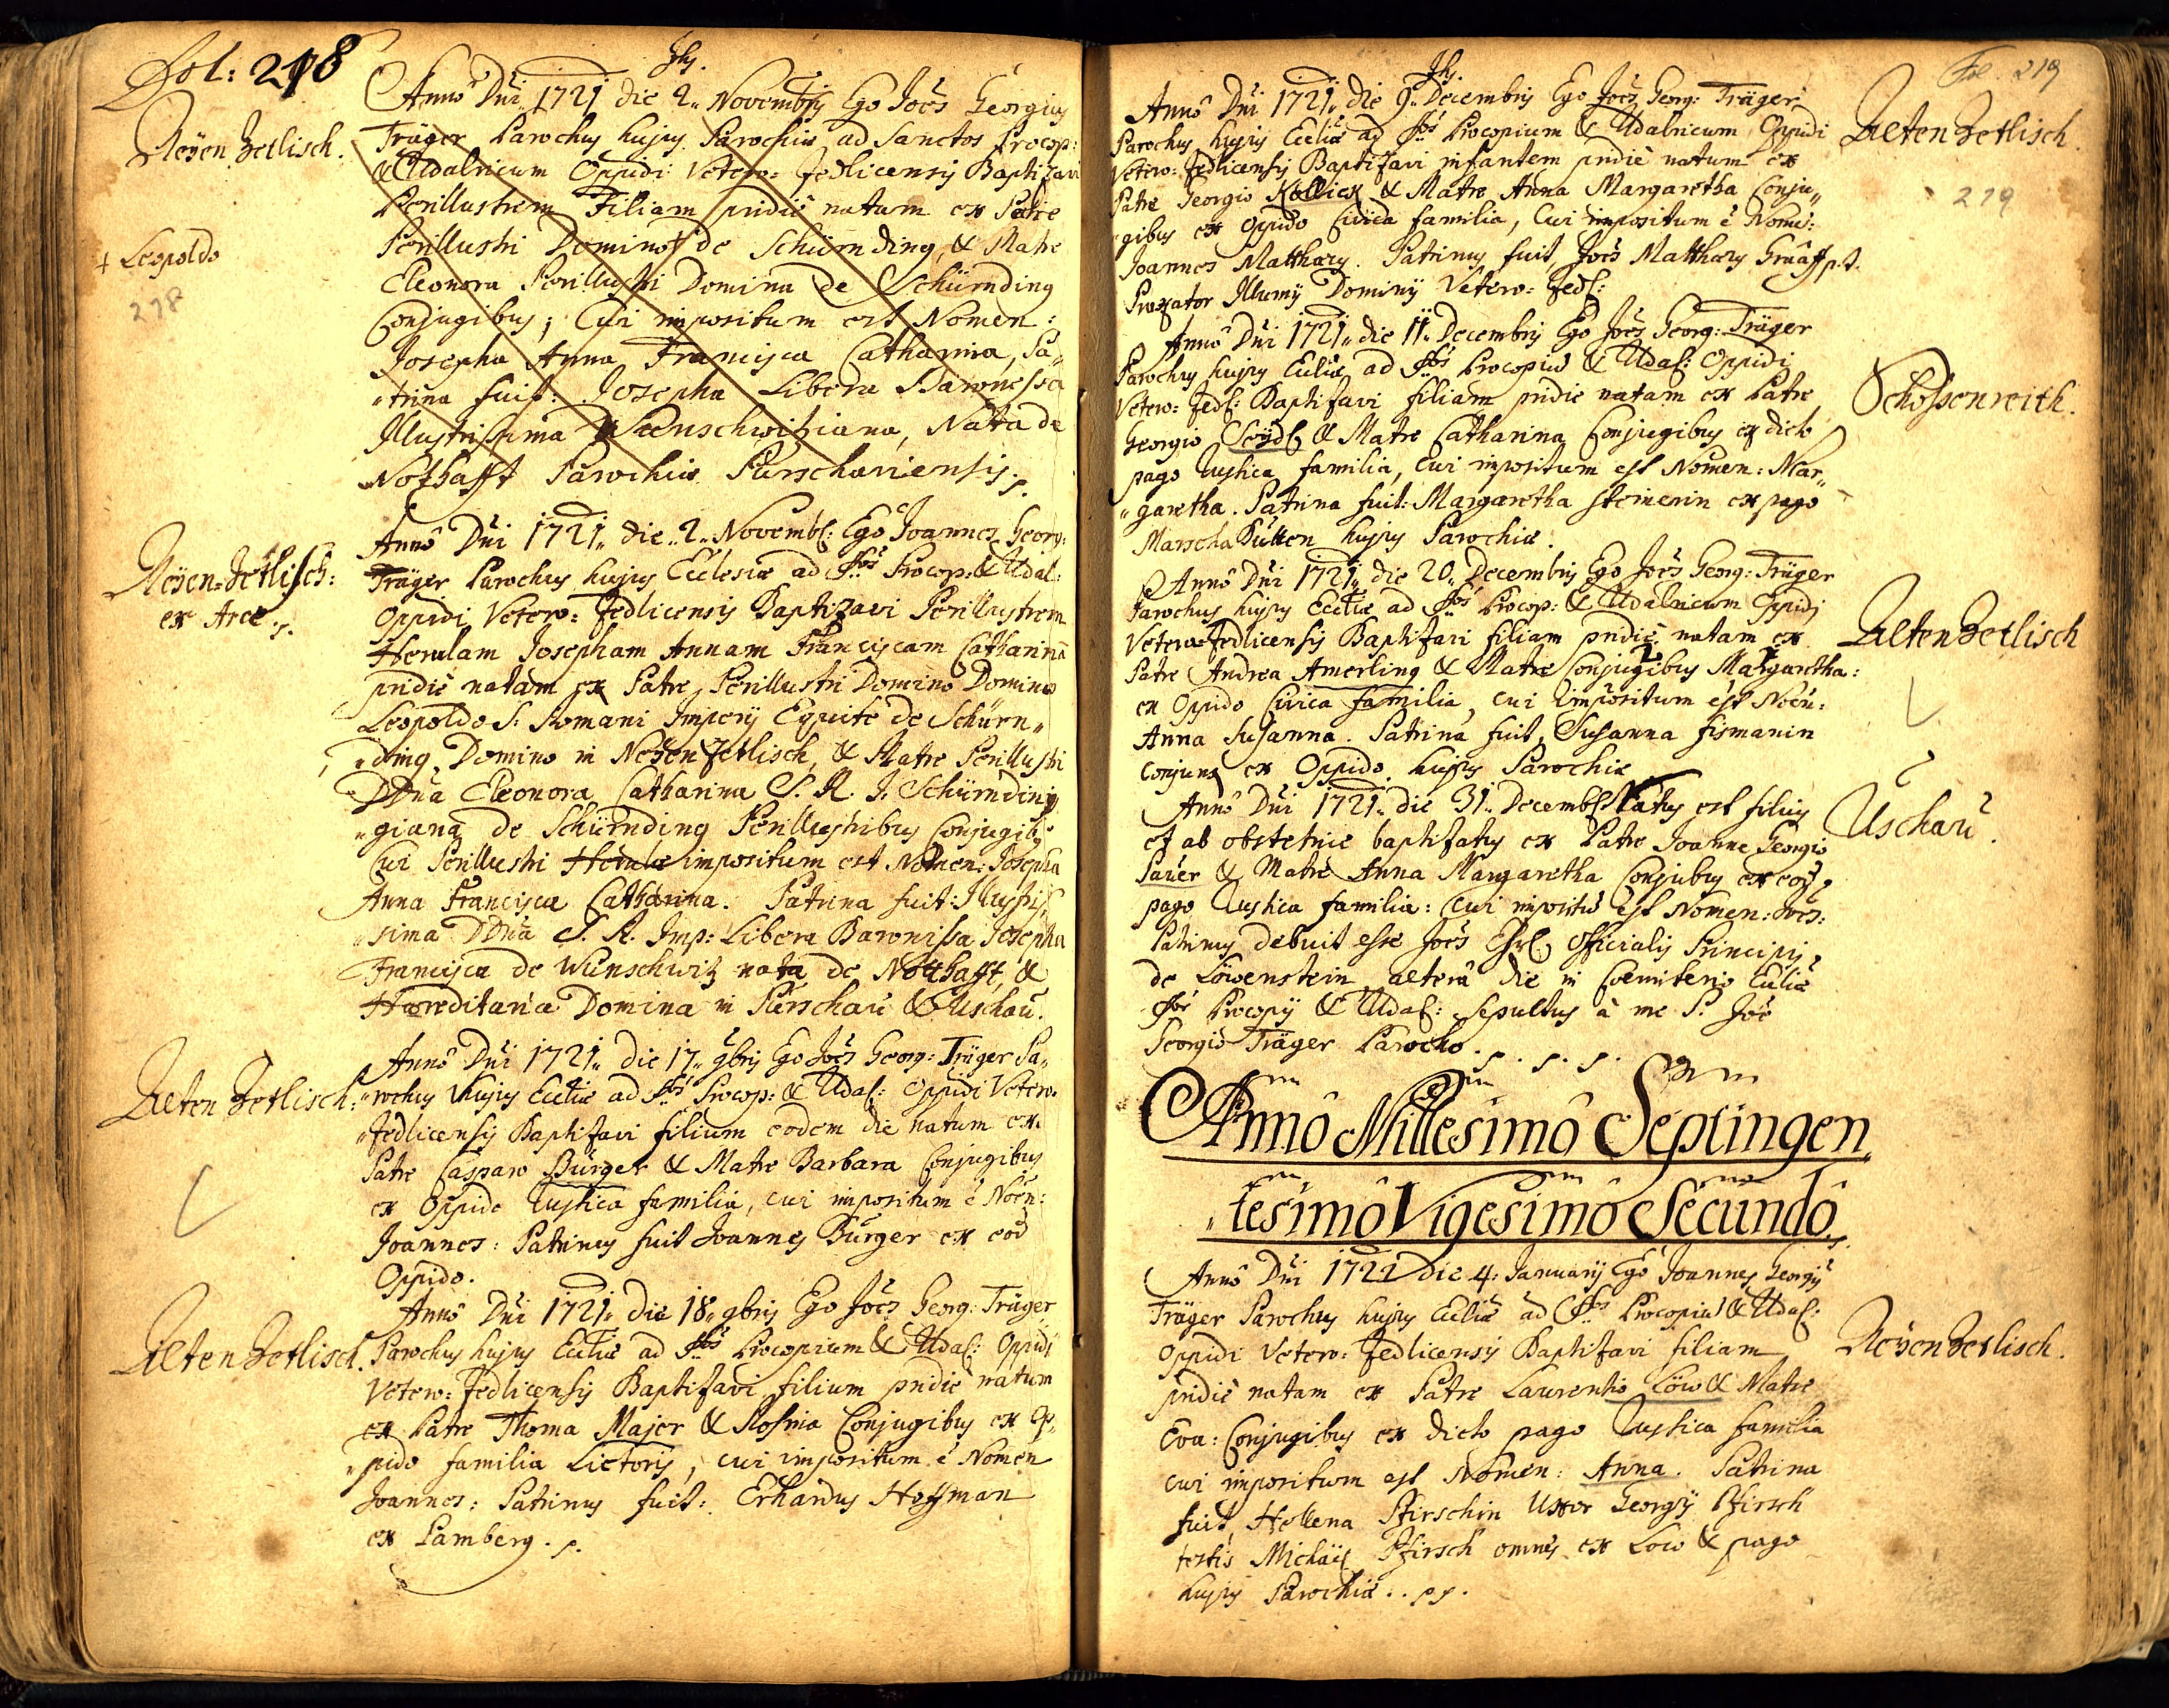 Fol: 218
Jhs.
Neÿen Zetlisch.
Anno Dni 1721 die 2 Novembris Ego Joës Georgius
Träger Parochus hujus Parochiæ ad Sanctos Procop:
& Udalricum Oppidi Vetero: Zedlicensis Baptizavi
Perillustrem Filiam pridie natam ex Patre
+ Leopoldo
Perillustri Domino + de Schürnding, & Matre
218
Eleonora Perillustri Domina de Schürnding
Conjugibus; Cui impositum est Nomen:
Josepha Anna Francisca Catharina, Pa„
„trina fuit: Josepha Libera Baronessa
Illustrissima Wunschwitziana, Nata de
Nothafft Parochiæ Purschaviensis.
Neÿen-Zetlisch:
ex Arce.
Anno Dni 1721 die 2 Novemb: Ego Joannes Georg:
Träger Parochus hujus Ecclesiæ ad SSos Procop: & Udal:
Oppidi Vetero: Zedlicensis Baptizavi Perillustrem
Herulam Josepham Annam Franciscam Catharinā
pridie natam ex Patre Perillustri Domino Domino
Leopoldo S: Romani Imperÿ Equite de Schürn„
„ding, Domino in Neÿen Zetlisch, & Matre Perillustri
DDna Eleonora Catharina S. R. I. Schürnding
„giana de Schürnding Perillustribus Conjugib9
Cui Perillustri Herulæ impositum est Nomen: Josepha
Anna Francisca Catharina. Patrina fuit: Illustris„
„sima DDna S. R. Imp: Libera Baronissa Josepha
Francisca de Wunschwitz nata de Notthafft, &
Hæreditaria Domina in Purschau & Uschau.
Alten Zetlisch:
Anno Dni 1721 die 17 9bris Ego Joës Georg: Träger Pa„
„rochus hujus Ecctiæ ad SSos Procop: & Udal: Oppidi Vetero:
„Zedlicensis Baptisavi filium eodem die natum ex
Patre Casparo Bürger & Matre Barbara Conjugibus
ex Oppido Rustica familia, cui impositum ê Noën:
Joannes: Patrinus fuit Joannes Bürger ex eod
Oppido.
Alten Zetlisch.
Anno Dni 1721 die 18 9bris Ego Joës Georg: Träger
Parochus hujus Ecctiæ ad SSos Procopium & Udal: Oppidi
Vetero: Zedlicensis Baptisavi filium pridie natum
ex Patre Thoma Majer & Rosina Conjugibus ex Op„
„pido familia Lictoris, cui impositum ê Nomen
Joannes: Patrinus fuit: Erhardus Hoffman
ex Lamberg.
Fol 219
Jhs.
Alten Zetlisch.
219
Anno Dni 1721 die 9 Decembris Ego Joës Georg: Träger
Parochus hujus Ecctiæ ad SSos Procopium & Udalricum Oppidi
Vetero: Zedlicensis Baptisavi infantem pridie natum ex
Patre Georgio Kollick & Matre Anna Margaretha Conju„
„gibus ex Oppido Civica familia, Cui impositum ê Nomē:
Joannes Matthæus. Patrinus fuit, Joës Matthæus Graaff p.t.
Procurator Illumÿ Dominÿ Vetero: Zedl:
Schossenreith.
Anno Dni 1721 die 11 Decembris Ego Joës Georg: Träger
Parochus hujus Ecctiæ ad SSos Procopiū & Udal: Oppidi
Vetero: Zedl: Baptisavi filiam pridie natam ex Patre
Georgio Seÿdl & Matre Catharina Conjugibus ex dicto
pago Rustica familia, cui impositum est Nomen: Mar„
„garetha. Patrina fuit: Margaretha Steinerin ex pago
Marscha Kutten hujus Parochiæ.
Alten Zetlisch
Anno Dni 1721 die 20 Decembris Ego Joës Georg: Träger
Parochus hujus Ecctiæ ad SSos Procop: & Udalricum Oppidi
Vetero-Zedlicensis Baptisavi filiam pridie natam ex
Patre Andrea Amerling & Matre 2 Conjugibus 1 Margaretha:
ex Oppido Civica familia, cui impositum est Noën:
Anna Susanna. Patrina fuit, Susanna Fismanin
conjunx ex Oppido hujus Parochiæ
Uschau.
Anno Dni 1721 die 31 Decemb: Natus est filius
et ab obstetrice baptisatus ex Patre Joanne Georgio
Sauer & Matre Anna Margaretha Conjubus ex eod
pago Rustica familia: Cui impositū est Nomen: Joës:
Patrinus debuit esse Joës Ehrl Officialis Principis
de Löwenstein altera die in Cœmiterio Ecctiæ
SSos Procopÿ & Udal: sepultus à me P. Joë
Georgio Träger Parocho.
Annô Millesimô Septingen„
„tesimô Vigesimô Secundô.
Neÿen Zetlisch.
Anno Dni 1722 die 4: Januarÿ Ego Joannes Georgÿ
Träger Parochus hujus Ecctiæ ad SSos Procopiū & Udal:
Oppidi Vetero: Zedlicensis Baptisavi filiam
pridie natam ex Patre Laurentio Löw & Matre
Eva: Conjugibus ex dicto pago Rustica familia
cui impositum est Nomen: Anna. Patrina
fuit, Hellena Pfirschin Uxor Georgÿ Pfirsch
testis Michäel Pfirsch omnes ex Low & pago
hujus Parochiæ.